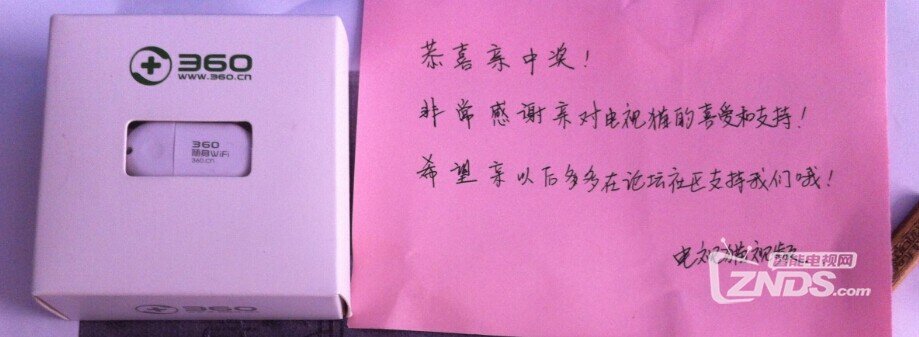 360
www.360.cn
360
随身WiFi
360.cn
恭喜亲中奖!
非常感谢亲对电视猫的喜爱和支持!
希望亲以后多多在论坛社区支持我们哦!
电视猫视频
智能电视网
ZNDS.com